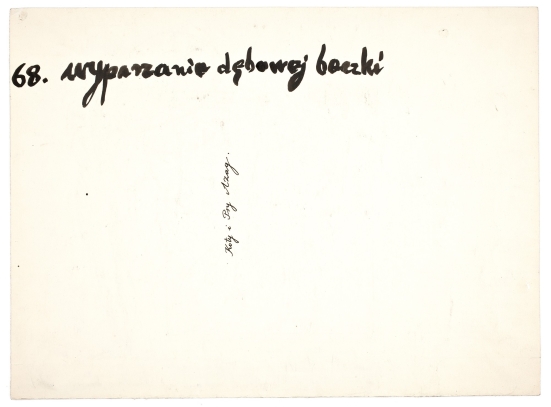 68. wyparzanie dębowej beczki
Koty i Psy